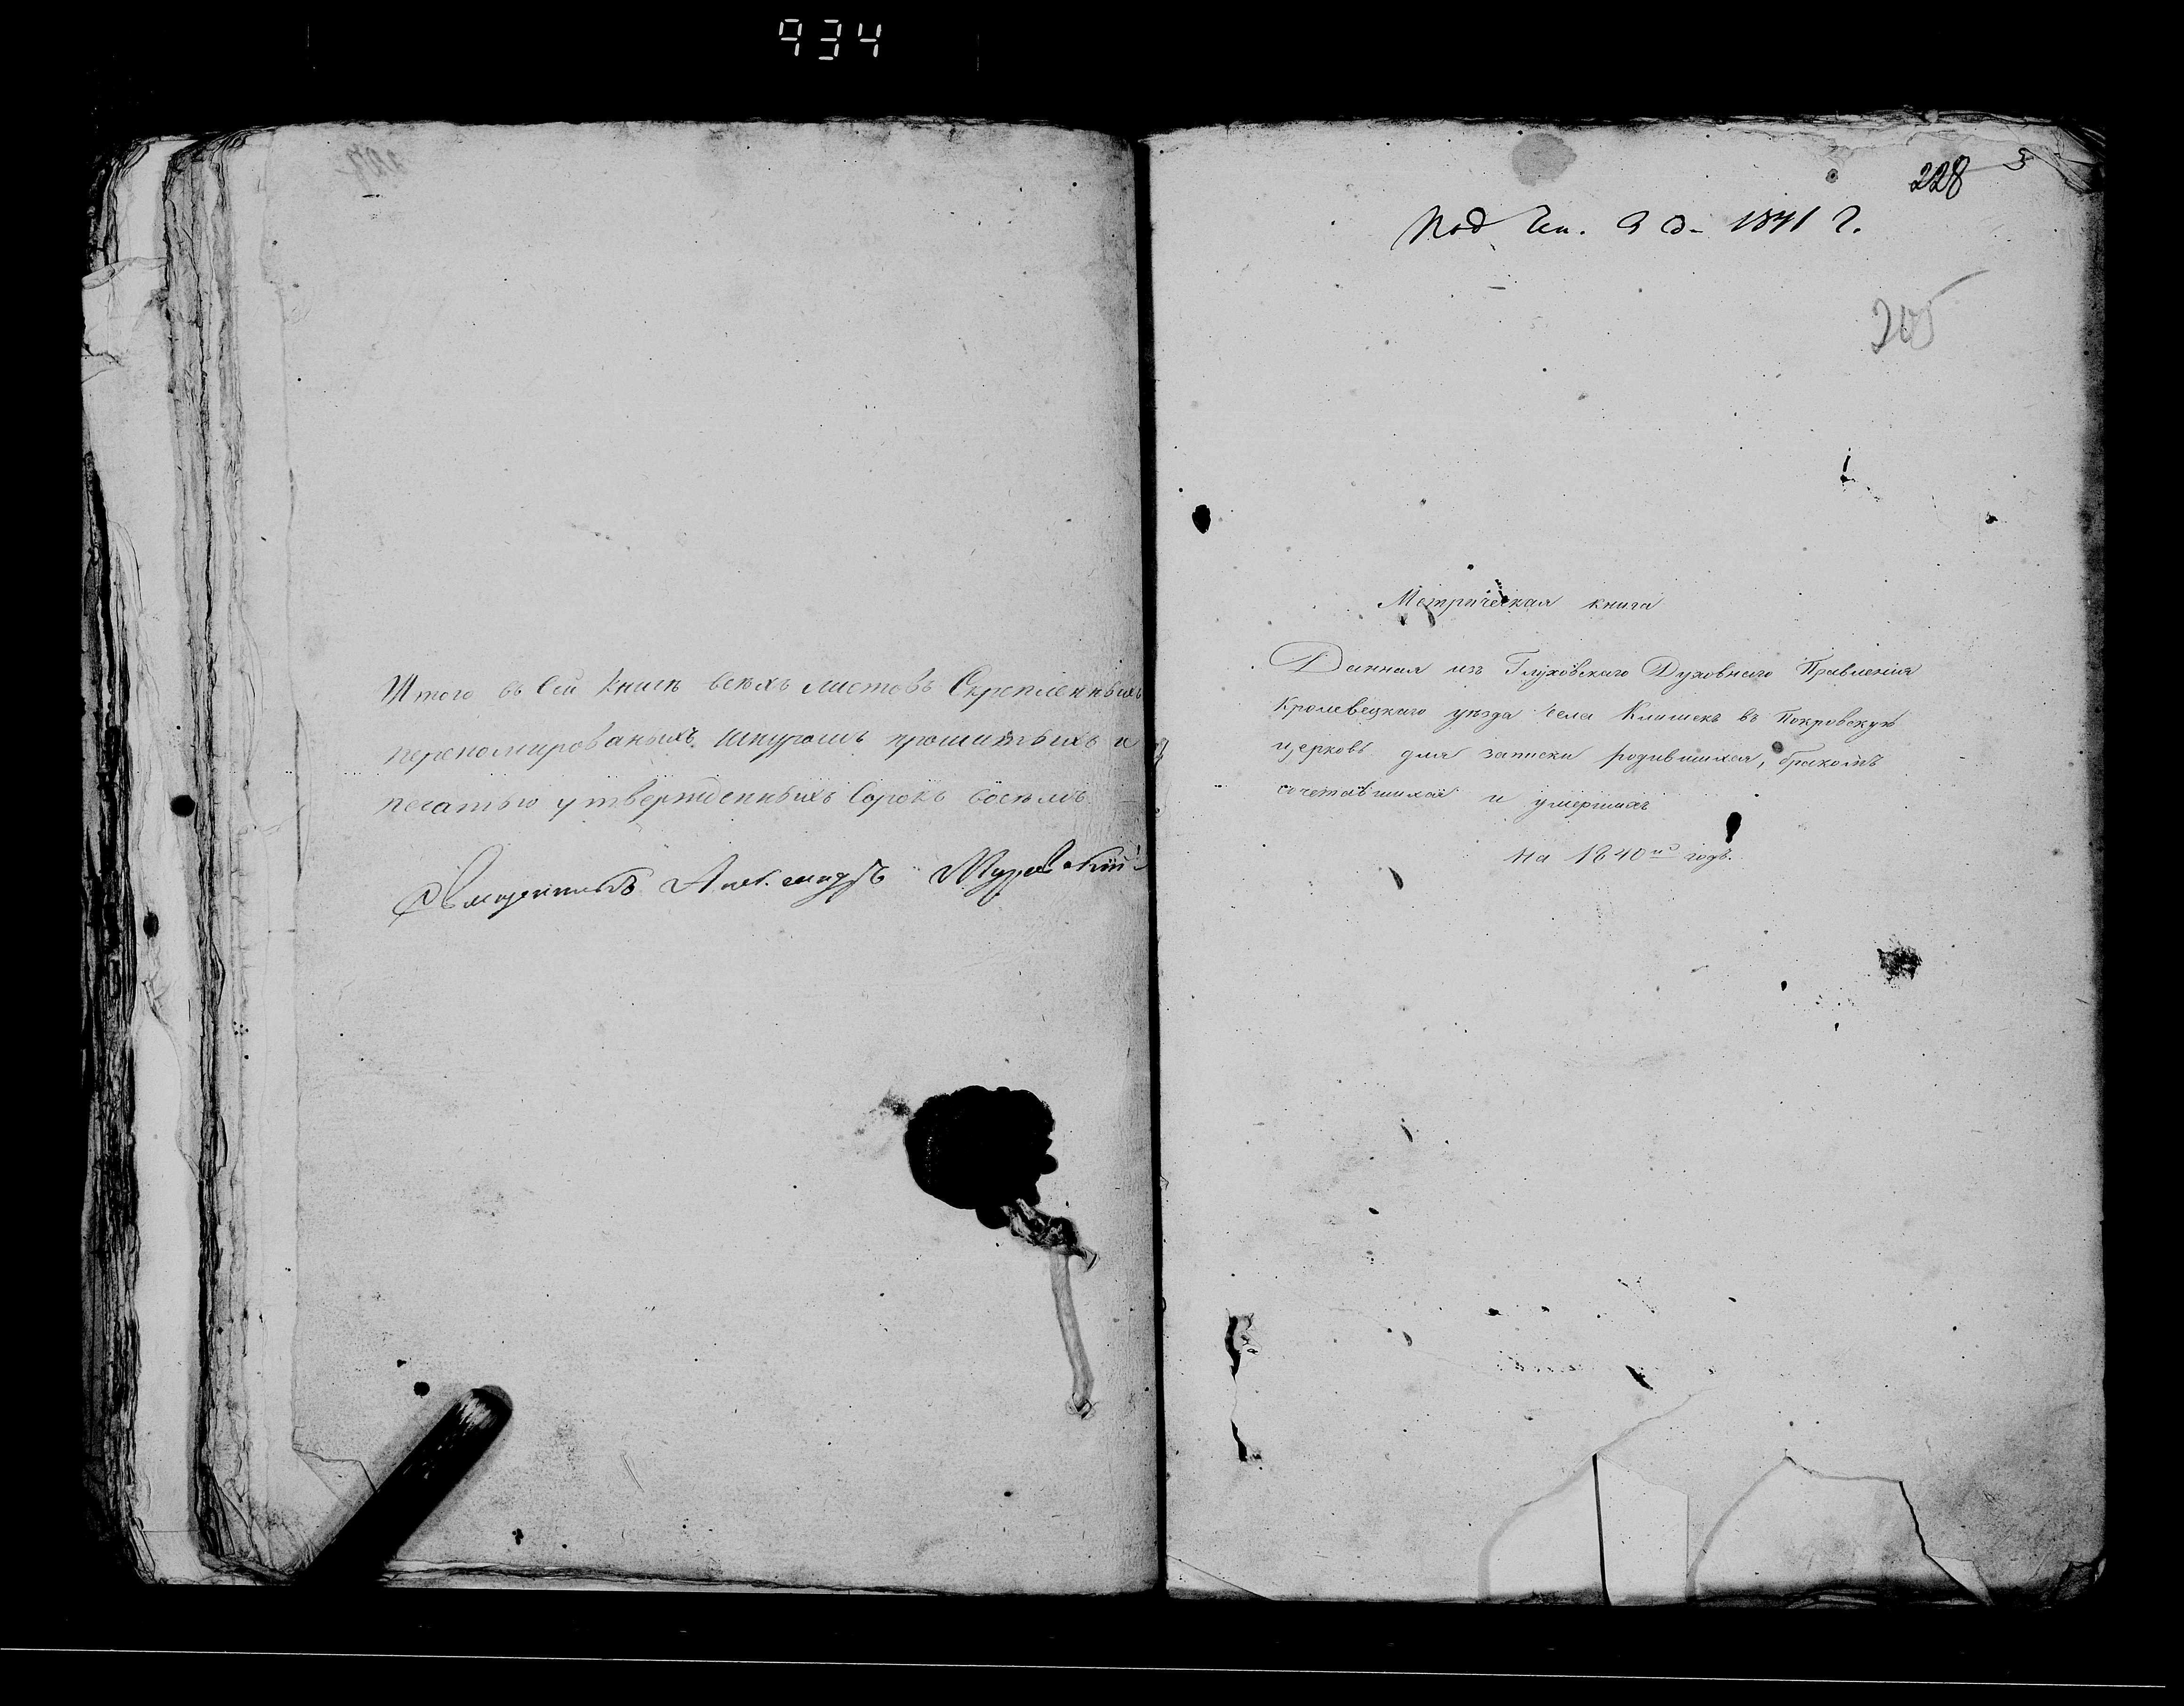 934
Итого въ Сей книгѣ всѣхъ листовъ Скрепленныхъ
переномированыхъ шнуромъ прошитыхъ и
печатью утвержденныхъ Сорокъ восѣмъ
Александръ
228
1841 г.
205
Метрическая книга
Данная изъ Глуховскаго Духовнаго Правленія
Кролевецкаго уѣзда села Клишекъ въ Покровскую
церковь для записки родившихся, бракомъ
сочетавшихся и умершихъ
на 1840й годъ.